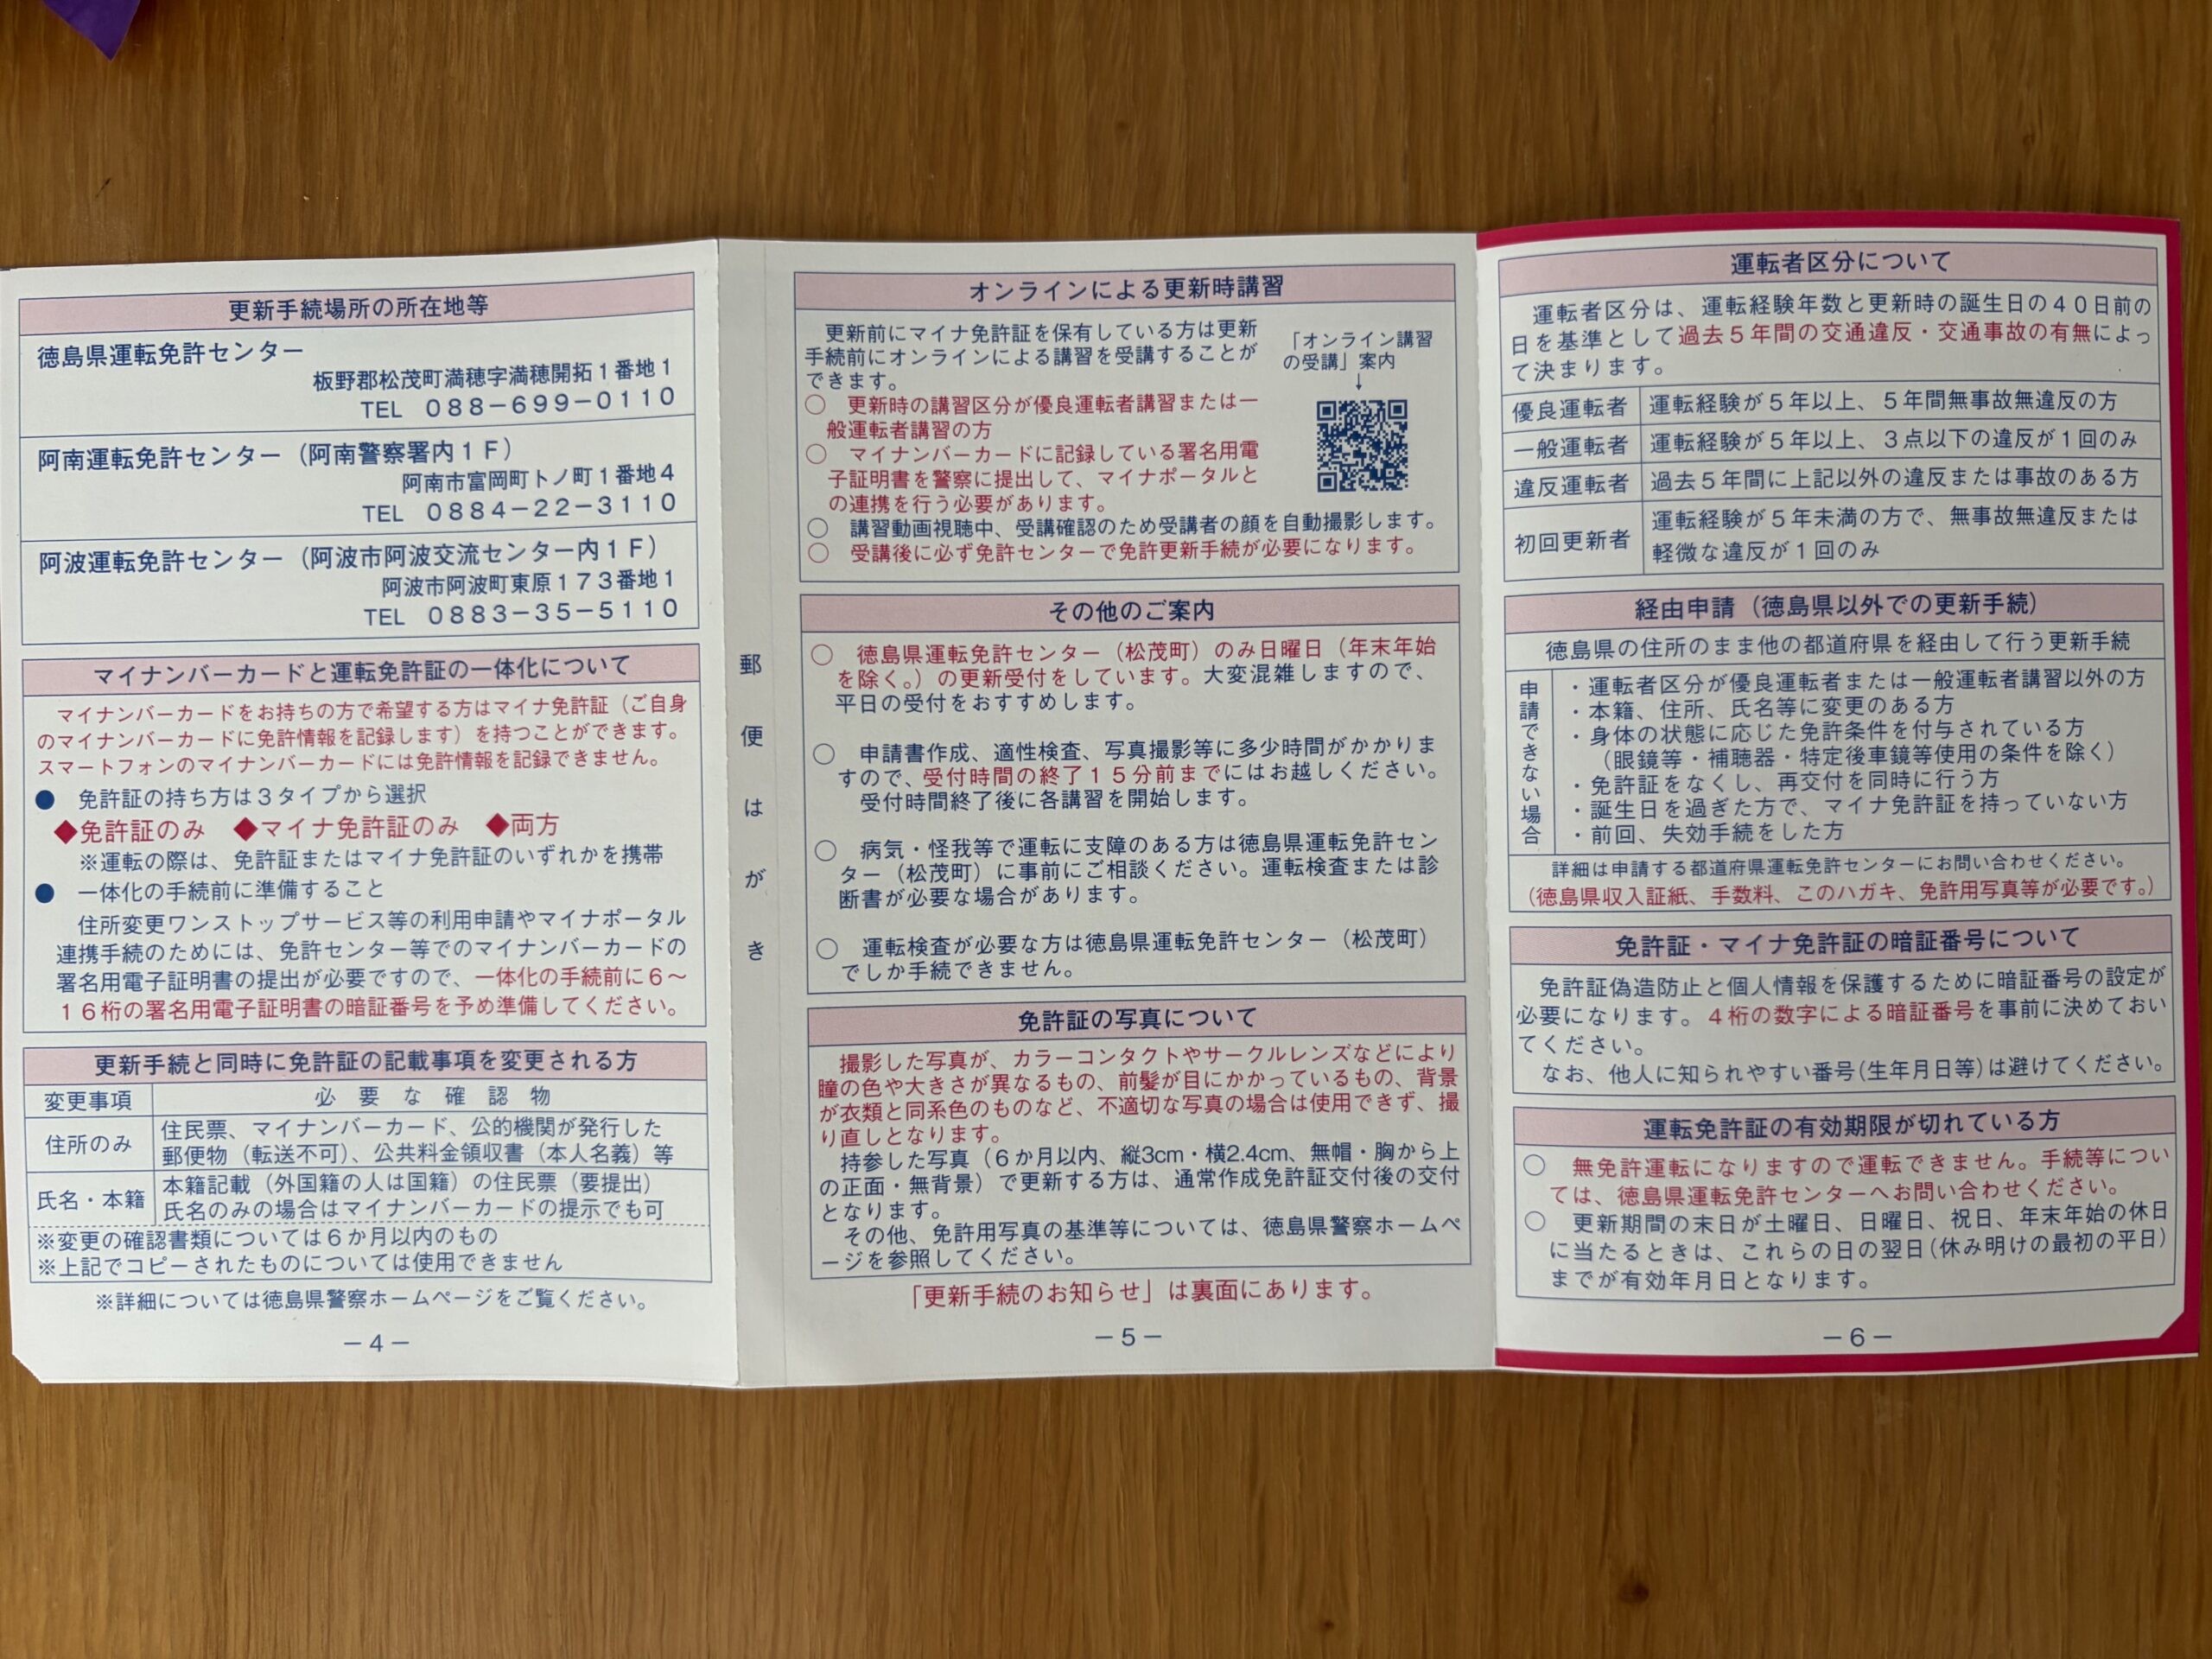 更新手続場所の所在地等
徳島県運転免許センター
板野郡松茂町満穂字満穂開拓1番地1
TEL 088-699-0110
阿南運転免許センター(阿南警察署内1F)
阿南市富岡町トノ町1番地4
TEL 0884-22-3110
阿波運転免許センター(阿波市阿波交流センター内1F)
阿波市阿波町東原173番地1
TEL 0883-35-5110
マイナンバーカードと運転免許証の一体化について
マイナンバーカードをお持ちの方で希望する方はマイナ免許証(ご自身
のマイナンバーカードに免許情報を記録します)を持つことができます。
スマートフォンのマイナンバーカードには免許情報を記録できません。
● 免許証の持ち方は3タイプから選択
◆免許証のみ ◆マイナ免許証のみ ◆両方
※運転の際は、免許証またはマイナ免許証のいずれかを携帯
● 一体化の手続前に準備すること
住所変更ワンストップサービス等の利用申請やマイナポータル
連携手続のためには、免許センター等でのマイナンバーカードの
署名用電子証明書の提出が必要ですので、一体化の手続前に6~
16桁の署名用電子証明書の暗証番号を予め準備してください。
更新手続と同時に免許証の記載事項を変更される方
変更事項 必要な確認物
住所のみ 住民票、マイナンバーカード、公的機関が発行した
郵便物(転送不可)、公共料金領収書(本人名義)等
氏名・本籍 本籍記載(外国籍の人は国籍)の住民票(要提出)
氏名のみの場合はマイナンバーカードの提示でも可
※変更の確認書類については6か月以内のもの
※上記でコピーされたものについては使用できません
※詳細については徳島県警察ホームページをご覧ください。
-4-
郵便はがき
オンラインによる更新時講習
更新前にマイナ免許証を保有している方は更新
手続前にオンラインによる講習を受講することが
できます。
○ 更新時の講習区分が優良運転者講習または一
般運転者講習の方
○ マイナンバーカードに記録している署名用電
子証明書を警察に提出して、マイナポータルと
の連携を行う必要があります。
○ 講習動画視聴中、受講確認のため受講者の顔を自動撮影します。
○ 受講後に必ず免許センターで免許更新手続が必要になります。
「オンライン講習
の受講」案内
↓
その他のご案内
○ 徳島県運転免許センター(松茂町)のみ日曜日(年末年始
を除く。)の更新受付をしています。大変混雑しますので、
平日の受付をおすすめします。
○ 申請書作成、適性検査、写真撮影等に多少時間がかかりま
すので、受付時間の終了15分前までにはお越しください。
受付時間終了後に各講習を開始します。
○ 病気・怪我等で運転に支障のある方は徳島県運転免許セン
ター(松茂町)に事前にご相談ください。運転検査または診
断書が必要な場合があります。
○ 運転検査が必要な方は徳島県運転免許センター(松茂町)
でしか手続できません。
免許証の写真について
撮影した写真が、カラーコンタクトやサークルレンズなどにより
瞳の色や大きさが異なるもの、前髪が目にかかっているもの、背景
が衣類と同系色のものなど、不適切な写真の場合は使用できず、撮
り直しとなります。
持参した写真(6か月以内、縦3cm・横2.4cm、無帽・胸から上
の正面・無背景)で更新する方は、通常作成免許証交付後の交付
となります。
その他、免許用写真の基準等については、徳島県警察ホームペ
ージを参照してください。
「更新手続のお知らせ」は裏面にあります。
-5-
運転者区分について
運転者区分は、運転経験年数と更新時の誕生日の40日前の
日を基準として過去5年間の交通違反・交通事故の有無によっ
て決まります。
優良運転者 運転経験が5年以上、5年間無事故無違反の方
一般運転者 運転経験が5年以上、3点以下の違反が1回のみ
違反運転者 過去5年間に上記以外の違反または事故のある方
初回更新者 運転経験が5年未満の方で、無事故無違反または
軽微な違反が1回のみ
経由申請(徳島県以外での更新手続)
徳島県の住所のまま他の都道府県を経由して行う更新手続
申請できない場合
・運転者区分が優良運転者または一般運転者講習以外の方
・本籍、住所、氏名等に変更のある方
・身体の状態に応じた免許条件を付与されている方
(眼鏡等・補聴器・特定後車鏡等使用の条件を除く)
・免許証をなくし、再交付を同時に行う方
・誕生日を過ぎた方で、マイナ免許証を持っていない方
・前回、失効手続をした方
詳細は申請する都道府県運転免許センターにお問い合わせください。
(徳島県収入証紙、手数料、このハガキ、免許用写真等が必要です。)
免許証・マイナ免許証の暗証番号について
免許証偽造防止と個人情報を保護するために暗証番号の設定が
必要になります。4桁の数字による暗証番号を事前に決めておい
てください。
なお、他人に知られやすい番号(生年月日等)は避けてください。
運転免許証の有効期限が切れている方
○ 無免許運転になりますので運転できません。手続等につい
ては、徳島県運転免許センターへお問い合わせください。
○ 更新期間の末日が土曜日、日曜日、祝日、年末年始の休日
に当たるときは、これらの日の翌日(休み明けの最初の平日)
までが有効年月日となります。
-6-